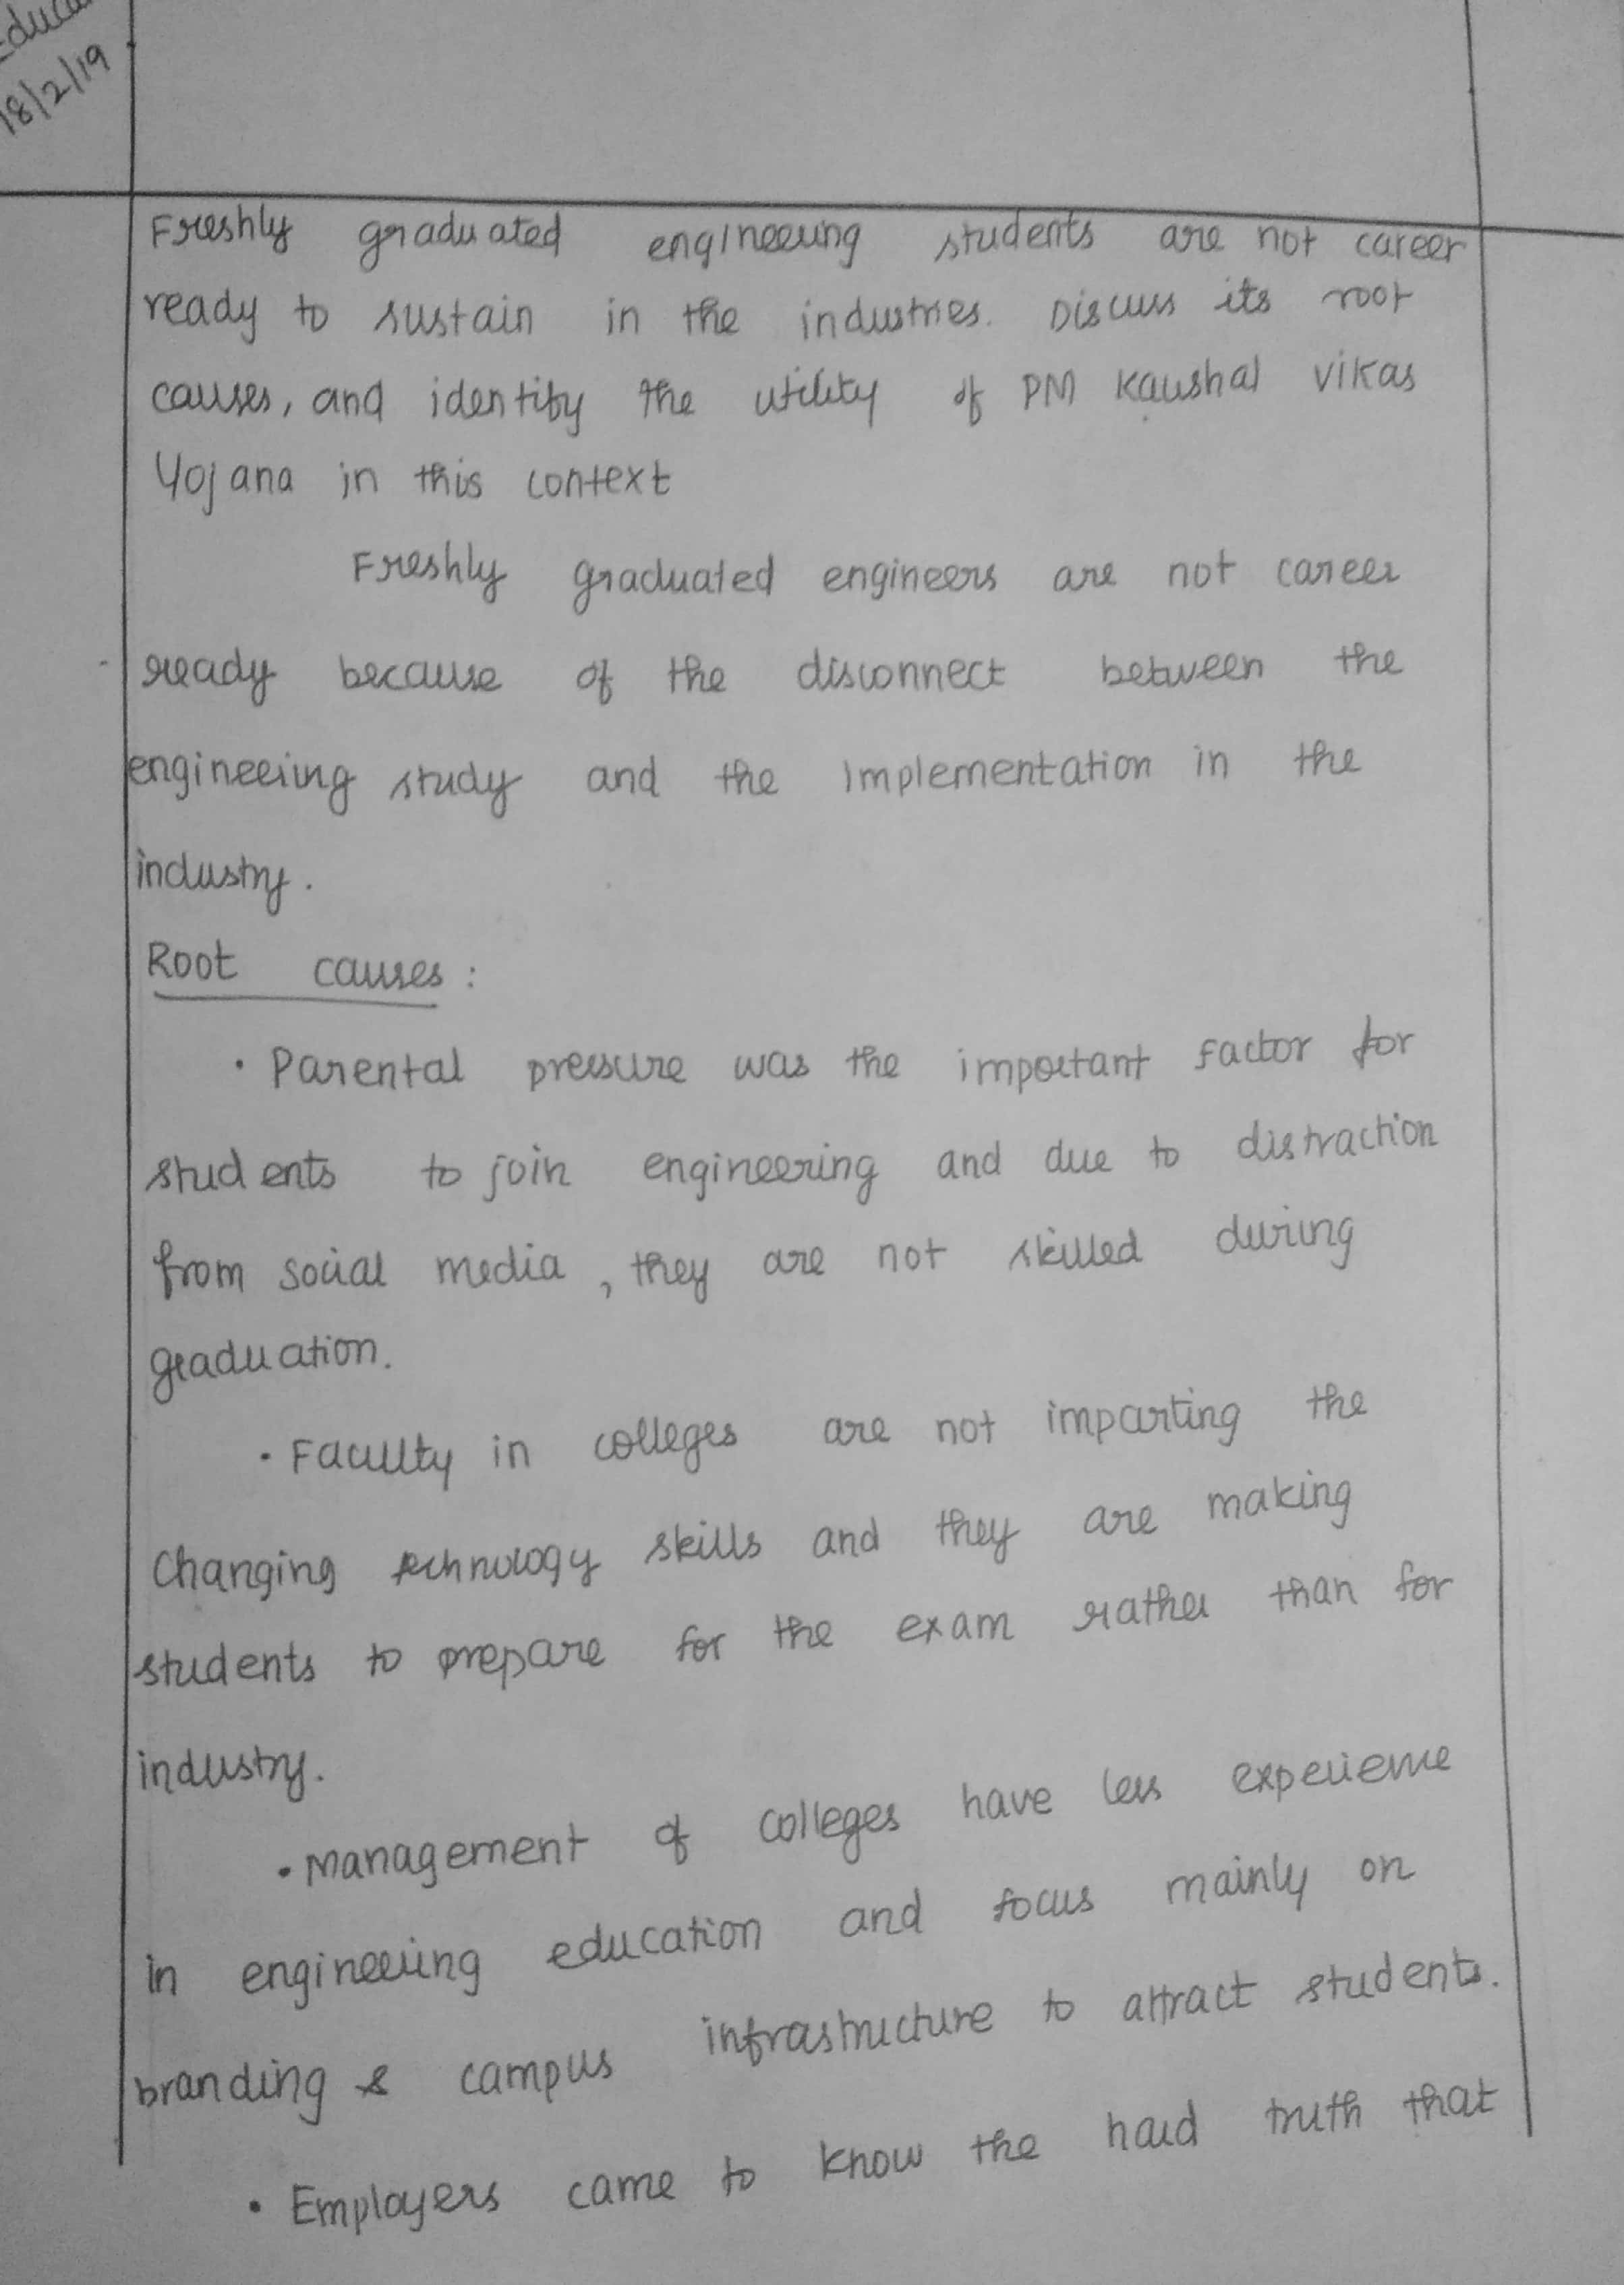 18/2/19
Freshly graduated engineering students are not career
ready to sustain in the industries. Discuss its root
causes, and identify the utility of PM Kaushal Vikas
Yojana in this context
Freshly graduated engineers are not career
ready because of the disconnect between the
engineering study and the implementation in the
industry.
Root causes :
• Parental pressure was the important factor for
students to join engineering and due to distraction
from social media, they are not skilled during
graduation.
• Faculty in colleges are not imparting the
Changing technology skills and they are making
students to prepare for the exam rather than for
industry.
• Management of colleges have less experience
in engineering education and focus mainly on
branding & campus infrastructure to attract students.
• Employers came to know the hard truth that